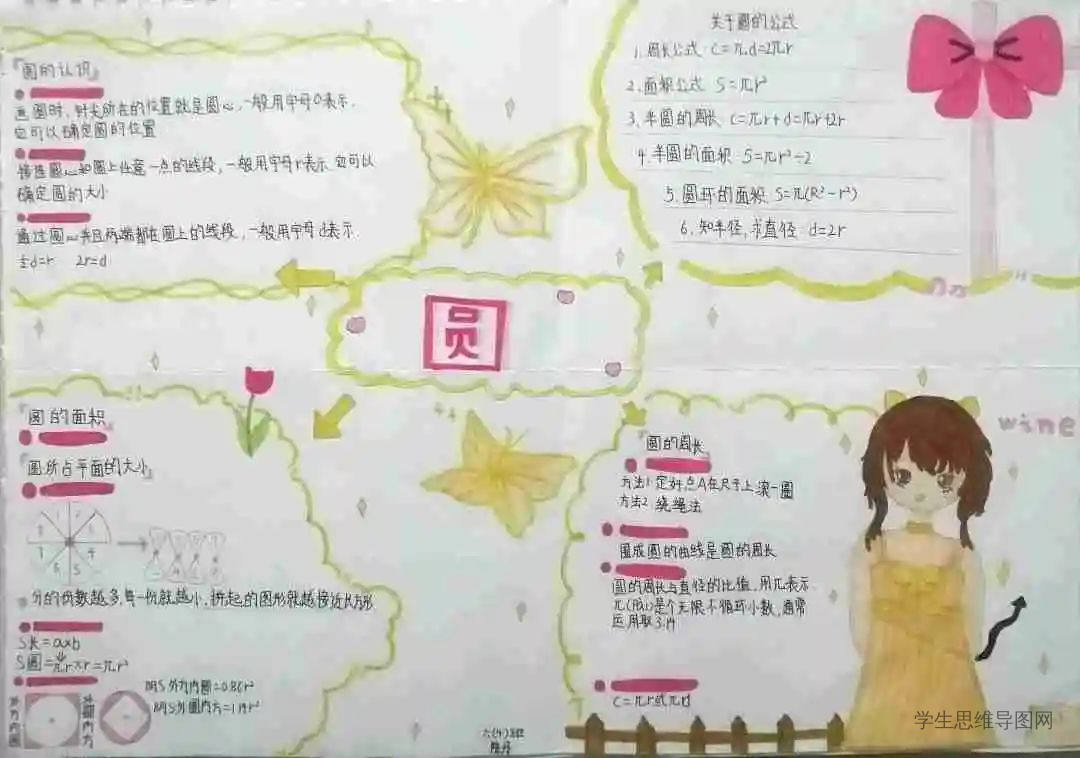 『圆的认识』
画圆时,针尖所在的位置就是圆心,一般用字母O表示.
它可以确定圆的位置
连接圆心和圆上任意一点的线段,一般用字母r表示.它可以
确定圆的大小
通过圆心并且两端都在圆上的线段,一般用字母d表示.
½d=r 2r=d
关于圆的公式
1.周长公式 C=πd=2πr
2.面积公式 S=πr²
3.半圆的周长 C=πr+d=πr+2r
4.半圆的面积 S=πr²÷2
5.圆环的面积 S=π(R²-r²)
6.知半径,求直径 d=2r
圆
『圆的面积』
『圆所占平面的大小』
分的份数越多,每一份就越小,拼起的图形就越接近长方形.
S长=a×b
S圆=πr×r=πr²
阴S外方内圆=0.86r²
阴S外圆内方=1.14r²
外方内圆
外圆内方
『圆的周长』
方法1.定好点A在尺子上滚一圈
方法2. 绕绳法
围成圆的曲线是圆的周长
圆的周长与直径的比值,用π表示.
是个无限不循环小数,通常
运用取3.14
C=πr或πd
wine
学生思维导图网